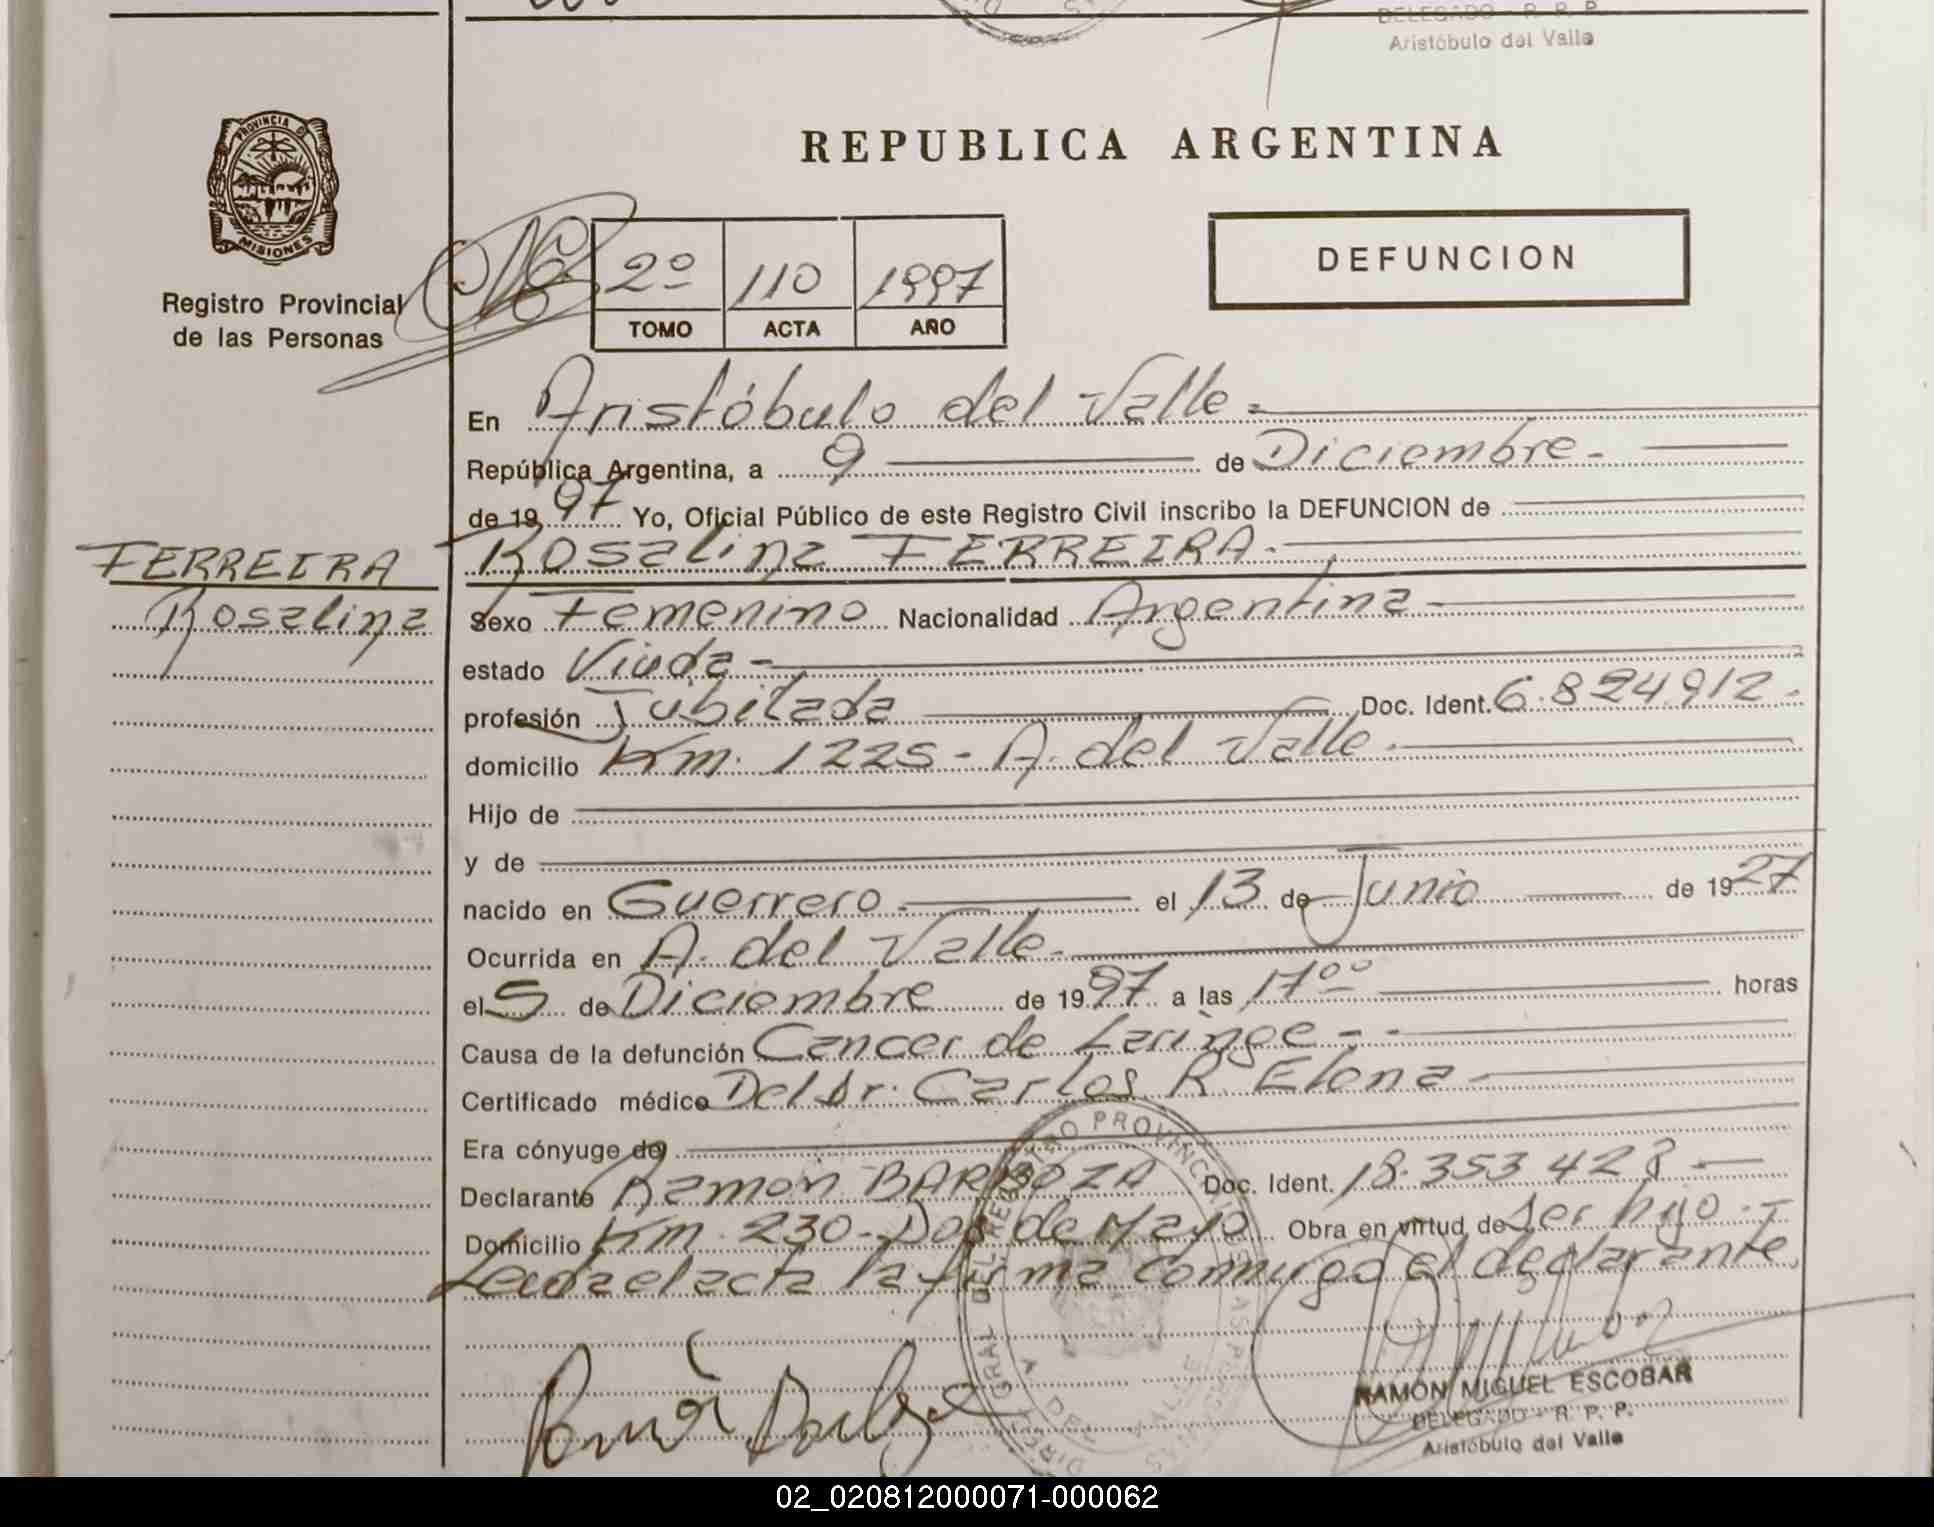 DELEGADO - R. P. P.
Aristóbulo del Valle
PROVINCIA DE
MISIONES
Registro Provincial
de las Personas
REPUBLICA ARGENTINA
2º 110 1997
TOMO ACTA AÑO
DEFUNCION
En Aristóbulo del Valle.
República Argentina, a 9 de Diciembre.
de 1997 Yo, Oficial Público de este Registro Civil inscribo la DEFUNCION de
FERREIRA
Rosalina
Rosalina FERREIRA.
Sexo Femenino Nacionalidad Argentina
estado Viuda
profesión Jubilada Doc. Ident. 6.824.912.
domicilio Km. 1225 - A. del Valle.
Hijo de
y de
nacido en Guerrero el 13 de Junio de 1927
Ocurrida en A. del Valle.
el 5 de Diciembre de 1997 a las 17ºº horas
Causa de la defunción Cancer de Laringe
Certificado médico Del Dr. Carlos R. Elena
Era cónyuge de
Declarante Ramon BARBOZA Doc. Ident. 18.353.428
Domicilio Km. 230 - Dos de Mayo Obra en virtud de ser hijo.
Leida el acta la firma conmigo el declarante.
RAMON MIGUEL ESCOBAR
DELEGADO - R. P. P.
Aristóbulo del Valle
02_020812000071-000062